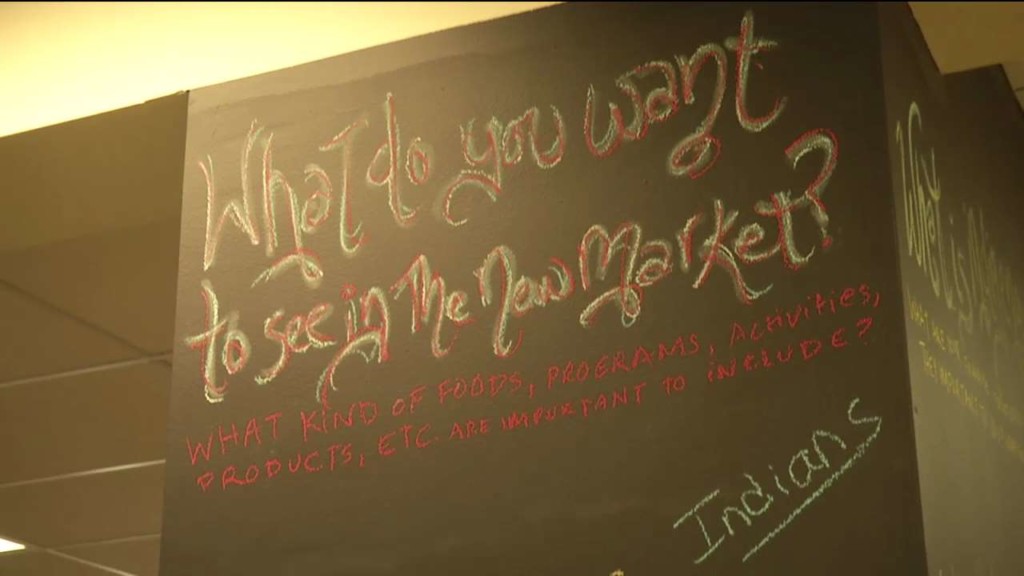 What do you want
to see in the New Market?
WHAT KIND OF FOODS, PROGRAMS, ACTIVITIES,
PRODUCTS, ETC. ARE IMPORTANT TO INCLUDE?
Indians
What is